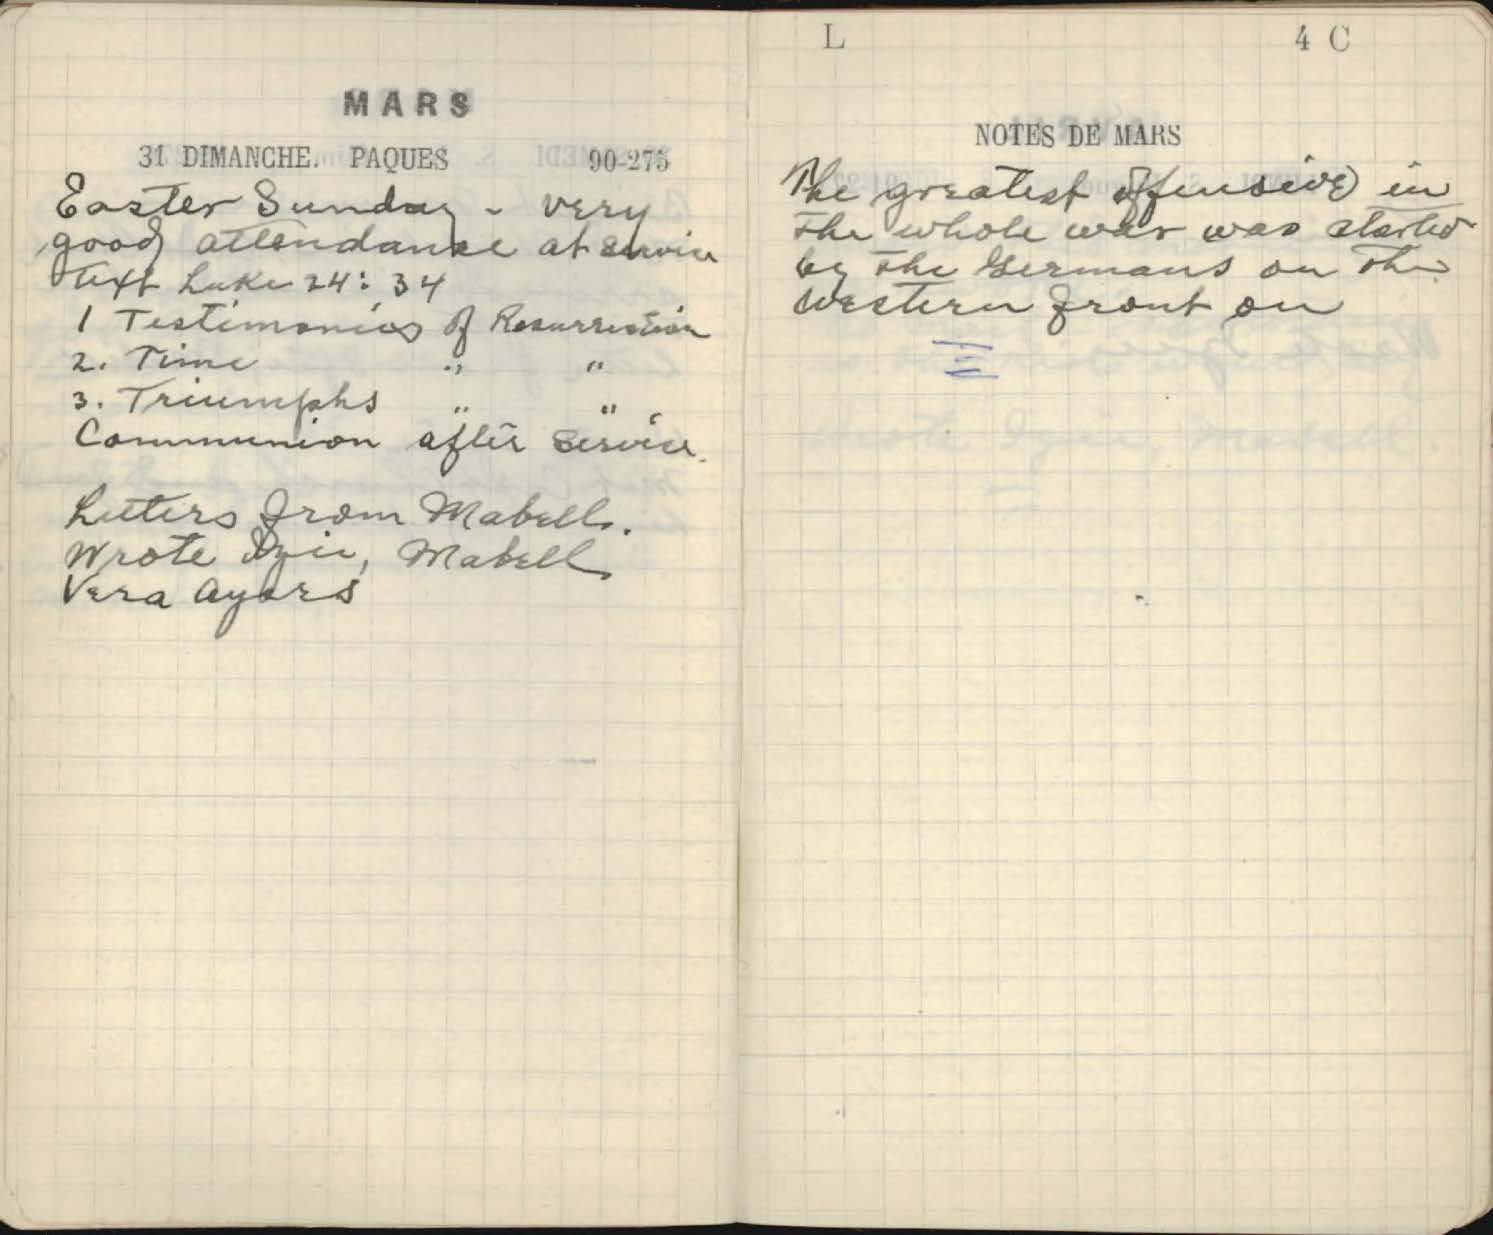 MARS
31 DIMANCHE. PAQUES 90-275
Easter Sunday - very
good attendance at service
Text Luke 24: 34
1 Testimonies of Resurrection
2. Time " "
3. Triumphs " "
Communion after service.
Letters from Mabell.
Wrote Mabell
Vera Ayars
L 4 C
NOTES DE MARS
The greatest offensive in
the whole war was started
by the Germans on the
Western front on